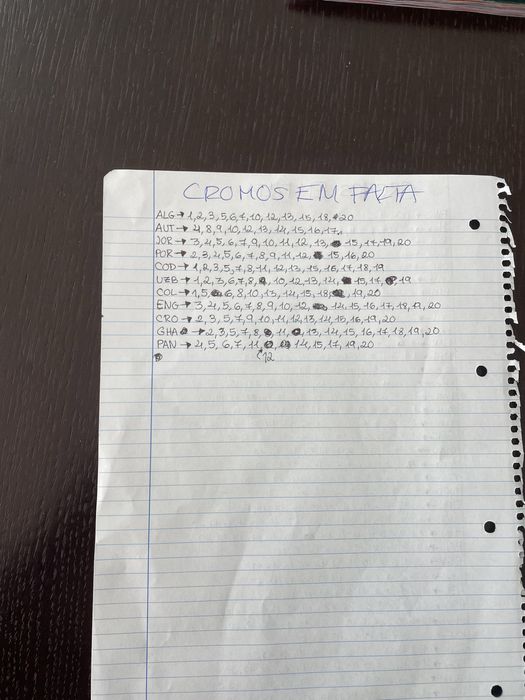 CROMOS EM FALTA
ALG → 1,2,3,5,6,7,10,12,13,15,18,20
AUT → 4,8,9,10,12,13,14,15,16,17.
JOR → 3,4,5,6,7,9,10,11,12,13, 15,17,19,20
POR → 2,3,4,5,6,7,8,9,11,12 15,16,20
COD → 1,2,3,5,7,8,11,12,13,15,16,17,18,19
UZB → 1,2,3,6,7,8, 10,12,13,14 15,17 19
COL → 1,5 6,8,10,13,14,15,18 19,20
ENG → 3,4,5,6,7,8,9,10,12 14,15,16,17,18,19,20
CRO → 2,3,5,7,9,10,11,12,13,14,15,16,19,20
GHA → 2,3,5,7,8, 11, 13,14,15,16,17,18,19,20
PAN → 4,5,6,7,11 14,15,17,19,20
12